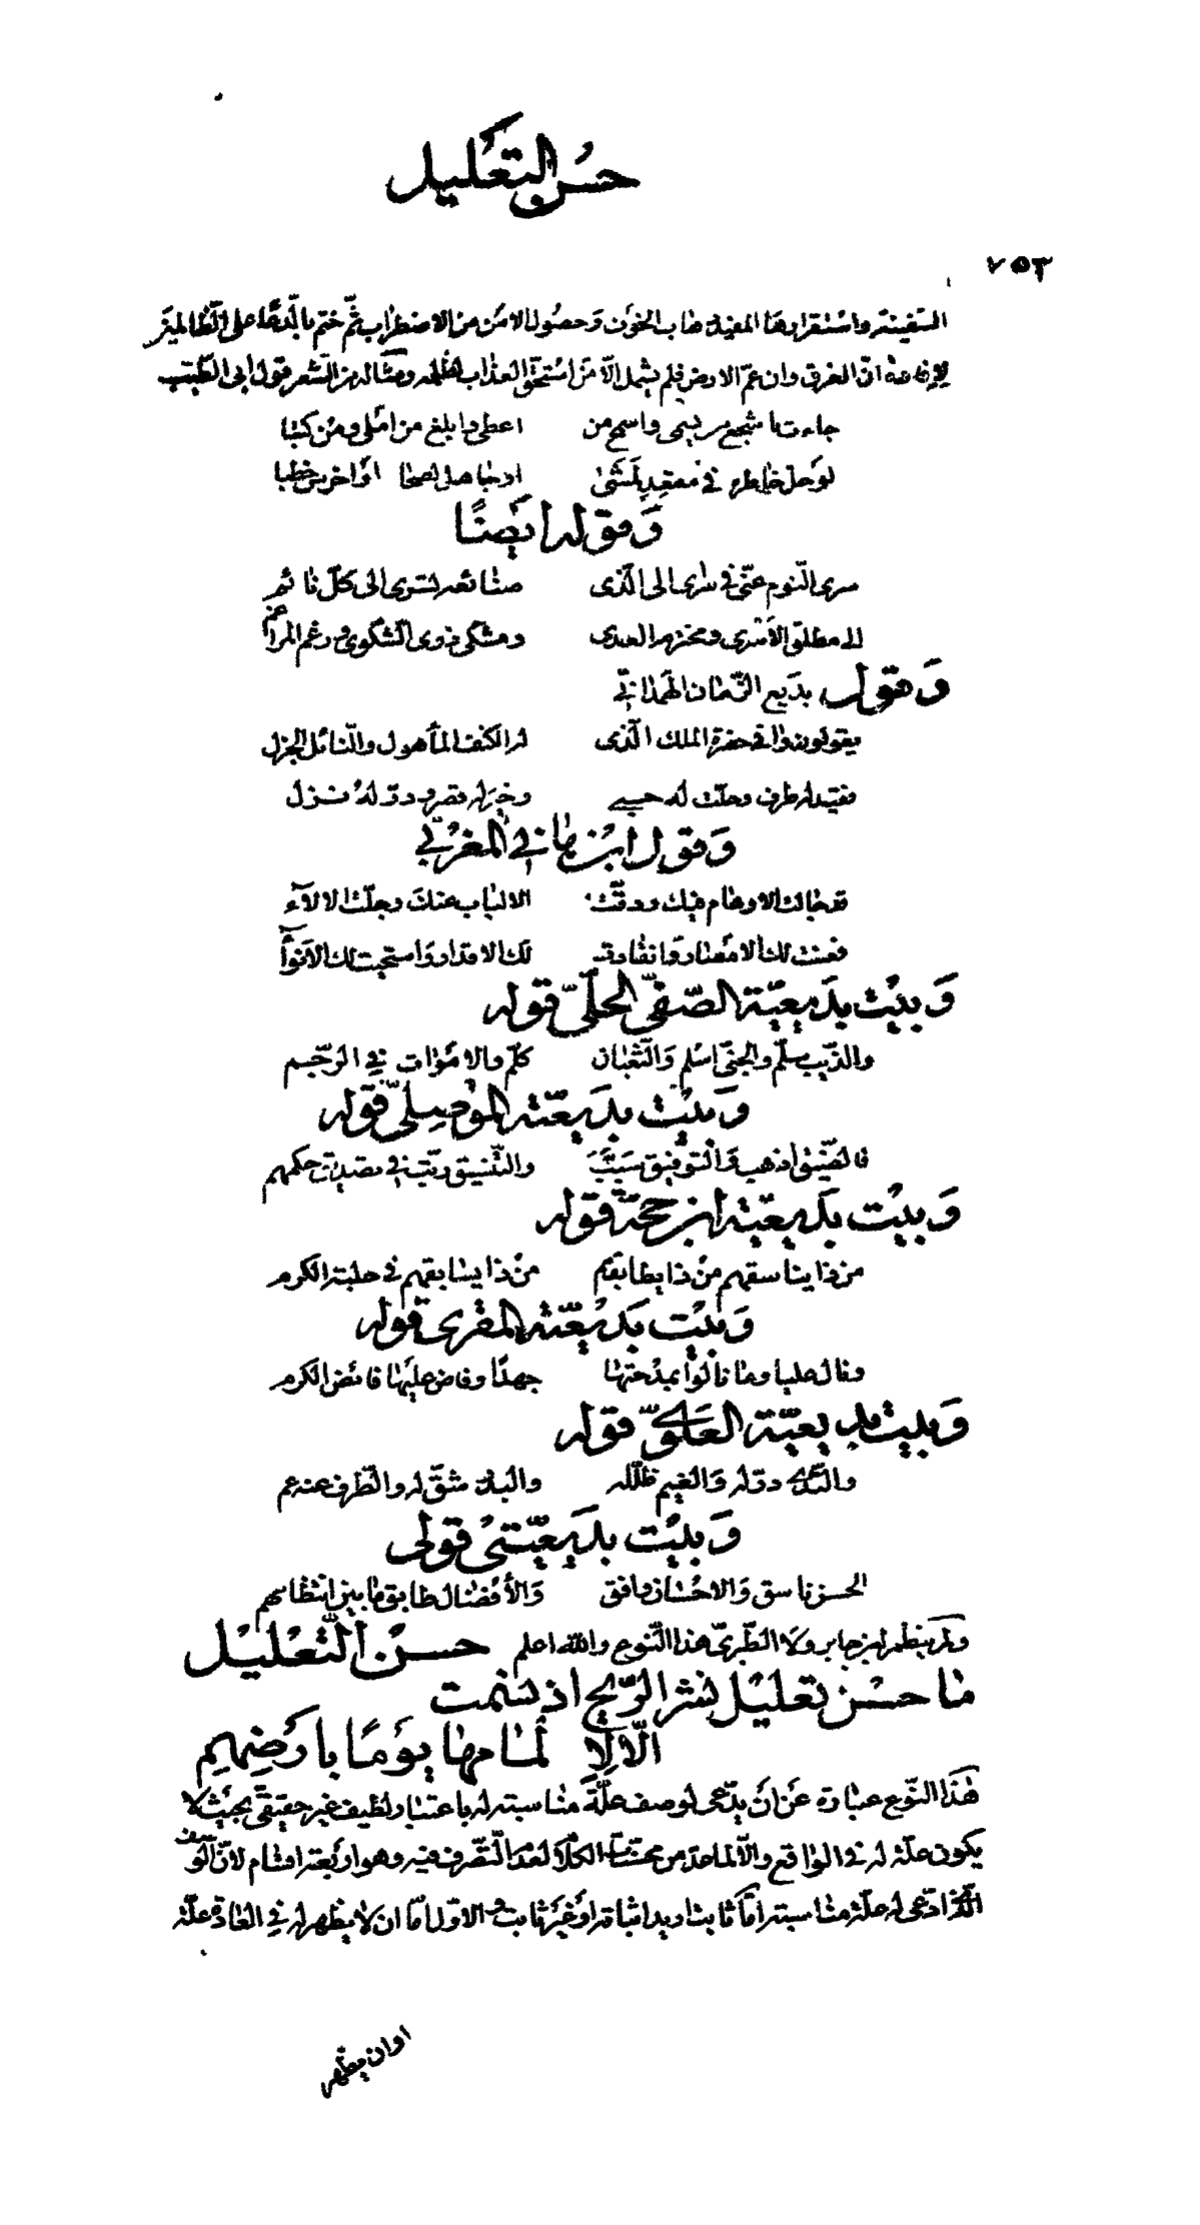 حسن التعليل
٧٥٣
السفينة واستقرارها المفيد ذهاب الخوف وحصول الامن من الاضطراب ثم ختم بالدعاء على الظالمين
لافادة ان الغرق وان عم الارض فلم يشمل الا من استحق العذاب لظلمه ومثاله من الشعر قول ابى الطيب
جاءت باشجع من يسمى واسمح من اعطى وابلغ من املى ومن كتبا
لو حل خاطره في مقعد لمشى او جاهل لصحا او اخرس خطبا
وقوله ايضًا
سرى النوم عنى في سراى الى الذى صنائعه تسرى الى كل نائم
الى مطلق الاسرى ومخترم العدى ومشكى ذوى الشكوى ورغم المراغم
وقول بديع الزمان الهمذانى
يقولون وافى حضرة الملك الذى له الكنف المأهول والنائل الجزل
فقيد له طرف وحلت له حبى وخير له قصر ودر له نزل
وقول ابن هانى المغربى
قد خالت الاوهام فيك ودقت الالباب عنك وجلت الالآء
فعنت لك الامصار وانقادت لك الاقدار واستحيت لك الانوآء
وبيت بديعية الصفى الحلى قوله
والذيب سلم والجنى اسلم والثعبان كلم والاموات في الرجم
وبيت بديعية الموصلى قوله
وبيت بديعية ابن حجة قوله
من ذا يناسقهم من ذا يطابقهم من ذا يسابقهم في حلبة الكرم
وبيت بديعية المقرى قوله
ونال عليا وما نالوا بمدحتها جهدًا وفاض عليها فائض الكرم
وبيت بديعية العلوى قوله
والغيم ظلله والبدر شق له والطرف عنه عم
وبيت بديعيتى قولى
الحسن ناسق والاحسان وافق والأفضال طابق ما بين انتظامهم
ولم ينظم ابن جابر ولا الطبرى هذا النوع والله اعلم حسن التعليل
ما حسن تعليل نشر الريح اذ نسمت
الا لالمامها يومًا بارضهم
هذا النوع عبارة عن ان يدعى لوصف علة مناسبة له باعتبار لطيف غير حقيقى بحيث لا
يكون علة له في الواقع والا لما عد من محسنات الكلام لعدم التصرف فيه وهو اربعة اقسام لان الوصف
الذى ادعى له علة مناسبة اما ثابت اريد اثباته او غير ثابت والاول اما ان لا يظهر له في العادة علة
او ان يظهر